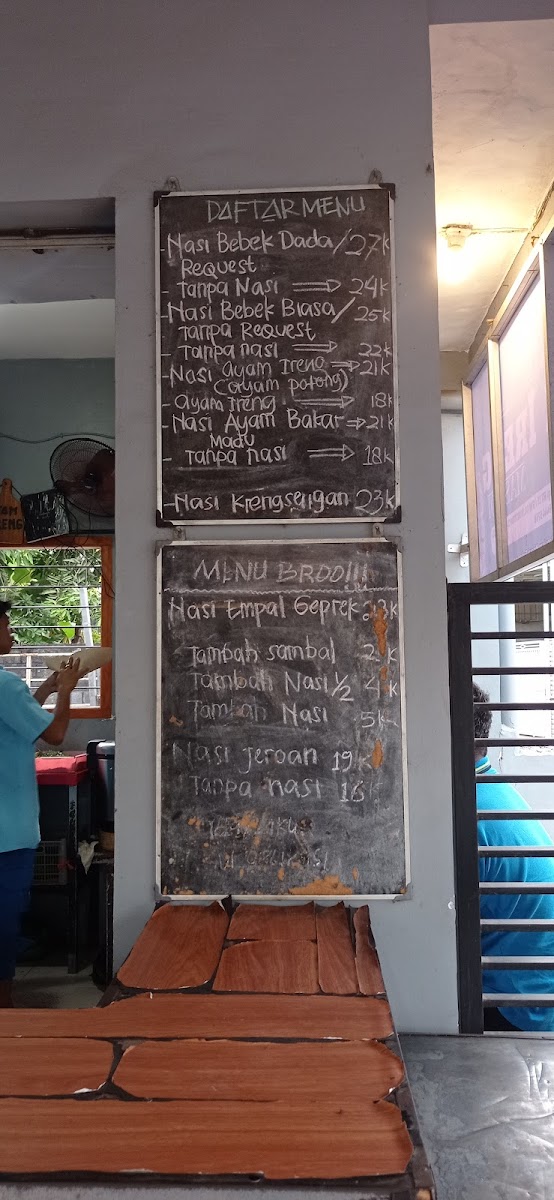 DAFTAR MENU
- Nasi Bebek Dada / 27K
Request
- Tanpa Nasi ⇒ 24K
- Nasi Bebek Biasa / 25K
Tanpa Request
- Tanpa nasi ⇒ 22K
- Nasi Ayam Ireng ⇒ 21K
(ayam potong)
- ayam ireng ⇒ 18K
- Nasi Ayam Bakar ⇒ 21K
Madu
- Tanpa nasi ⇒ 18K
- Nasi Krengsengan 23K
MENU BROO!!!
Nasi Empal Geprek
Tambah sambal 2K
Tambah Nasi 1/2 4K
Tambah Nasi 5K
Nasi Jeroan 19K
Tanpa nasi 16K